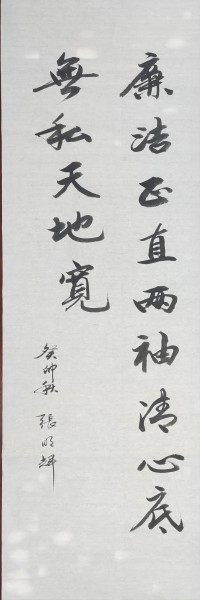 廉洁正直两袖清心底
無私天地寬
癸卯秋 張明輝